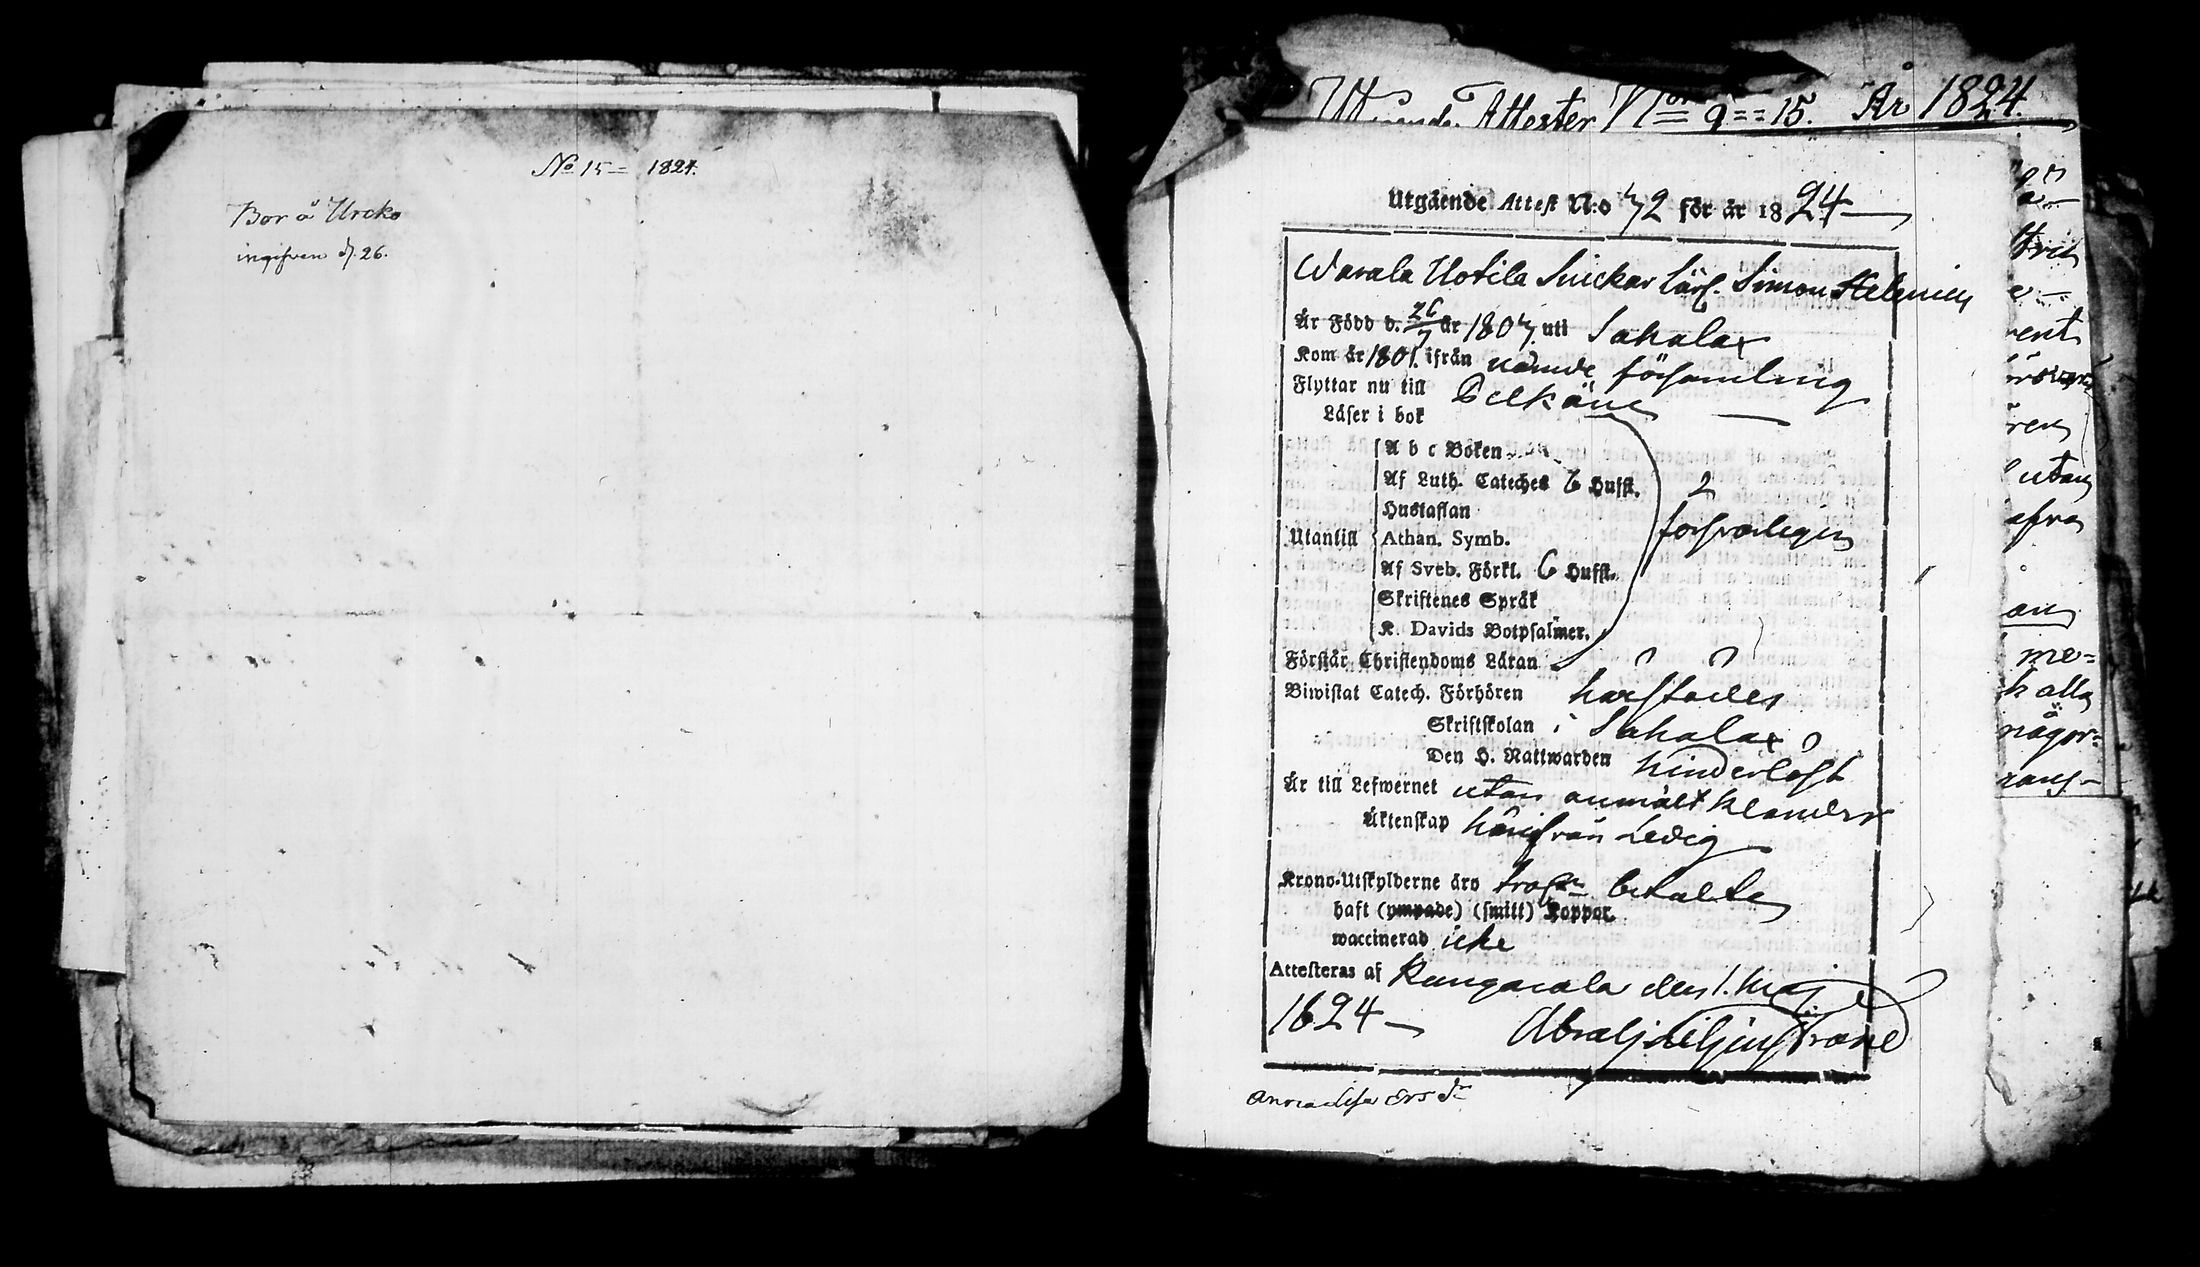 No 15 = 1824.
Bor å Urcko
ingifven d. 26.
Attester N:ris 9 == 15. År 1824.
Utgående Attest N:o 72 för år 1824
Warala Uotila Snickar Lärl. Simon Helenius
Är Född d. 26/7 år 1807. uti Sahalax
Kom år 1801. ifrån nämde församling
Flyttar nu till Pelkäne
Läser i bok
A b c Boken
Af Luth. Cateches 6 Hufst.
Hustaflan
Utantill Athan. Symb. försvarligen
Af Sveb. Förkl. 6 Hufst.
Skriftenes Språk
K. Davids Botpsalmer.
Förstår Christendoms Läran
Biwistat Catech. Förhören härstädes
Skriftskolan i Sahalax
Den H. Nattwarden hinderlöst
Är till Lefwernet utan anmält klander
Äktenskap härifrån Ledig
Krono-Utskylderne äro betalte
haft (ympade) (smitt) Koppor.
waccinerad icke
Attesteras af Kangasala den 1. Maj
1824
Abra Liljestrand
utan
an
me=
någor=